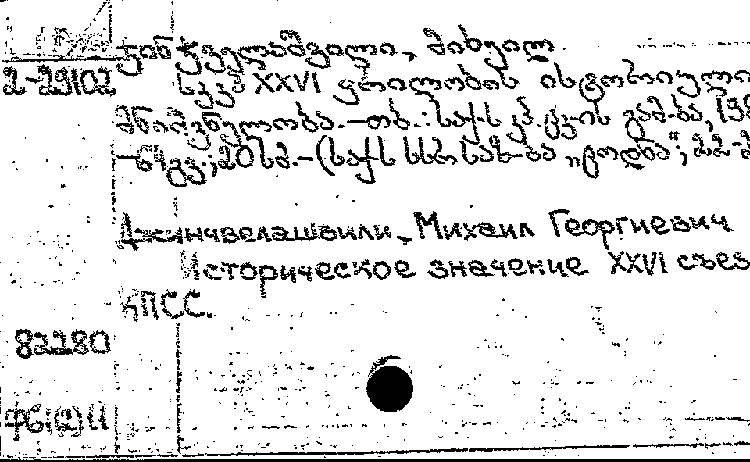 ჯინჭველაშვილი, მიხეილ
2-29102
სკკპ XXVI ყრილობის ისტორიული
მნიშვნელობა.–თბ.: საქ-ს კპ ცკ-ის გამ-ბა, 198
გვ.; 20 სმ.–(საქ-ს სსრ საზ-ბა „ცოდნა";
Джинчвелашвили, Михаил Георгиевич
Историческое значение XXVI съез
КПСС.
82280